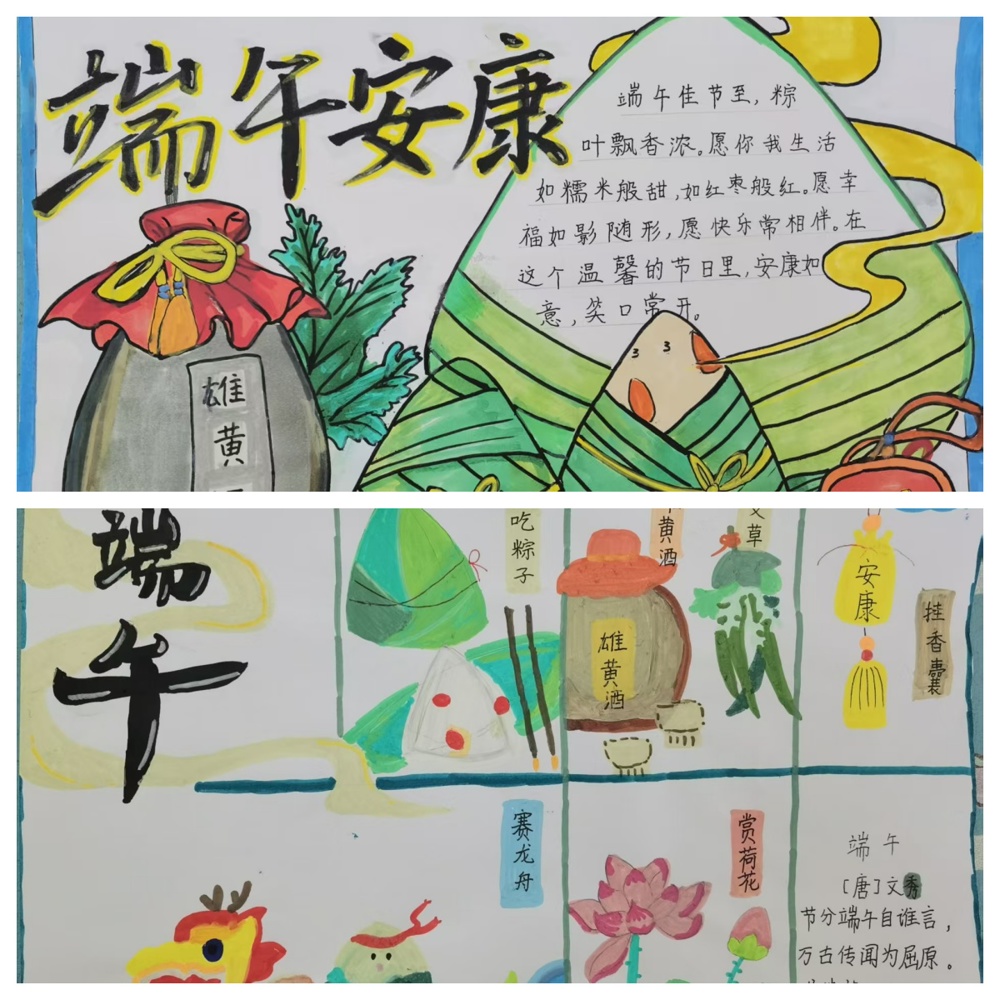 端午安康
端午佳节至，粽
叶飘香浓。愿你我生活
如糯米般甜，如红枣般红。愿幸
福如影随形，愿快乐常相伴。在
这个温馨的节日里，安康如
意，笑口常开。
雄
黄
端
午
吃粽子
黄酒
草
雄黄酒
安康
挂香囊
赛龙舟
赏荷花
端午
[唐]文秀
节分端午自谁言，
万古传闻为屈原。